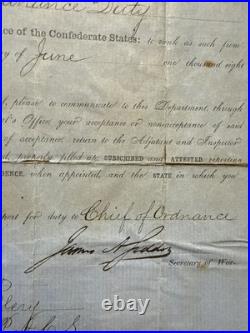 Ordnance Duty
ce of the Confederate States: to rank as such from
y of June
one thousand eight
, please to communicate to this Department, through
l's Office, your acceptance or nonacceptance of said
of acceptance, return to the Adjutant and Inspector
properly filled up, SUBSCRIBED and ATTESTED, reporting
DENCE, when appointed, and the STATE in which you
port for duty to Chief of Ordnance
James A. Seddon
Secretary of War.